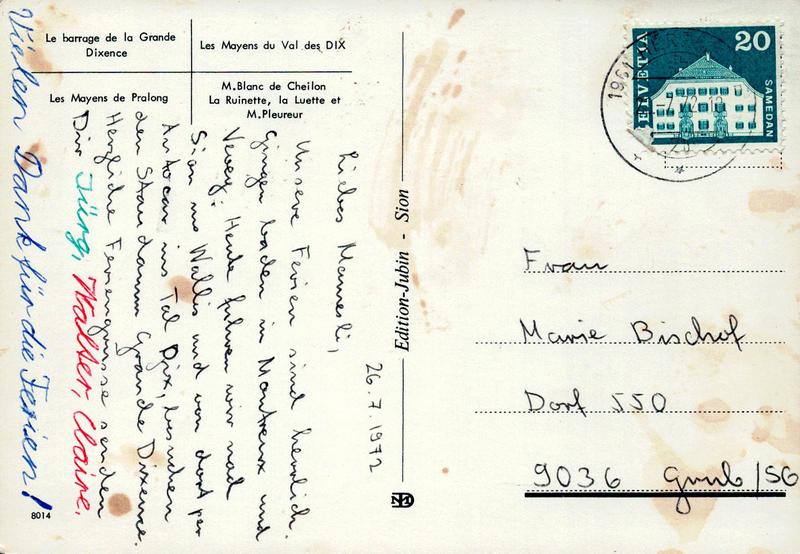 Le barrage de la Grande
Dixence
Les Mayens du Val des DIX
Les Mayens de Pralong
M.Blanc de Cheilon
La Ruinette, la Luette et
M.Pleureur
26.7.1972
Liebes Mameli,
Unsere Ferien sind herrlich.
Gingen baden in Montreux und
Vevey. Heute fuhren wir nach
Sion ins Wallis und von dort per
Autocar ins Tal Dix, besuchen
den Staudamm Grande Dixence.
Herzliche Feriengrüsse senden
Dir Jürg, Walter, Claire.
Vielen Dank für die Ferien!
8014
Edition-Jubin - Sion
HELVETIA
20
SAMEDAN
Frau
Marie Bischof
Dorf 550
9036 Grub/SG